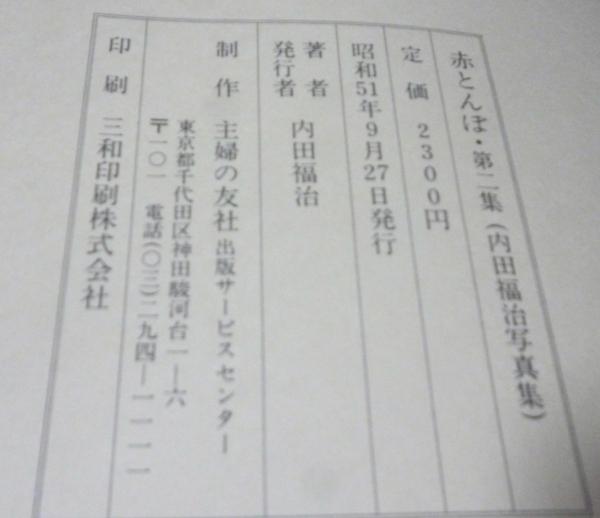 赤とんぼ・第二集(内田福治写真集)
定価 2300円
昭和51年9月27日発行
著者
発行者 内田福治
制作 主婦の友社出版サービスセンター
東京都千代田区神田駿河台一―六
〒一〇一 電話(〇三)二九四―一一一一
印刷 三和印刷株式会社